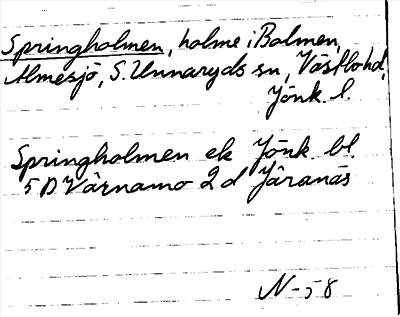 Springholmen, holme i Bolmen,
Almesjö, S. Unnaryds sn, Västbo hd,
Jönk. l.
Springholmen ek Jönk. bl.
5 D Värnamo 2 d Järanäs
N-58